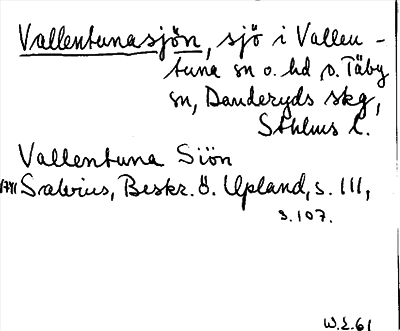 Vallentunasjön, sjö i Vallen-
tuna sn o. hd o. Täby
sn, Danderyds skg,
Sthlms l.
Vallentuna Siön
1741 Salvius, Beskr. ö. Upland, s. III,
s. 107.
W.L.61